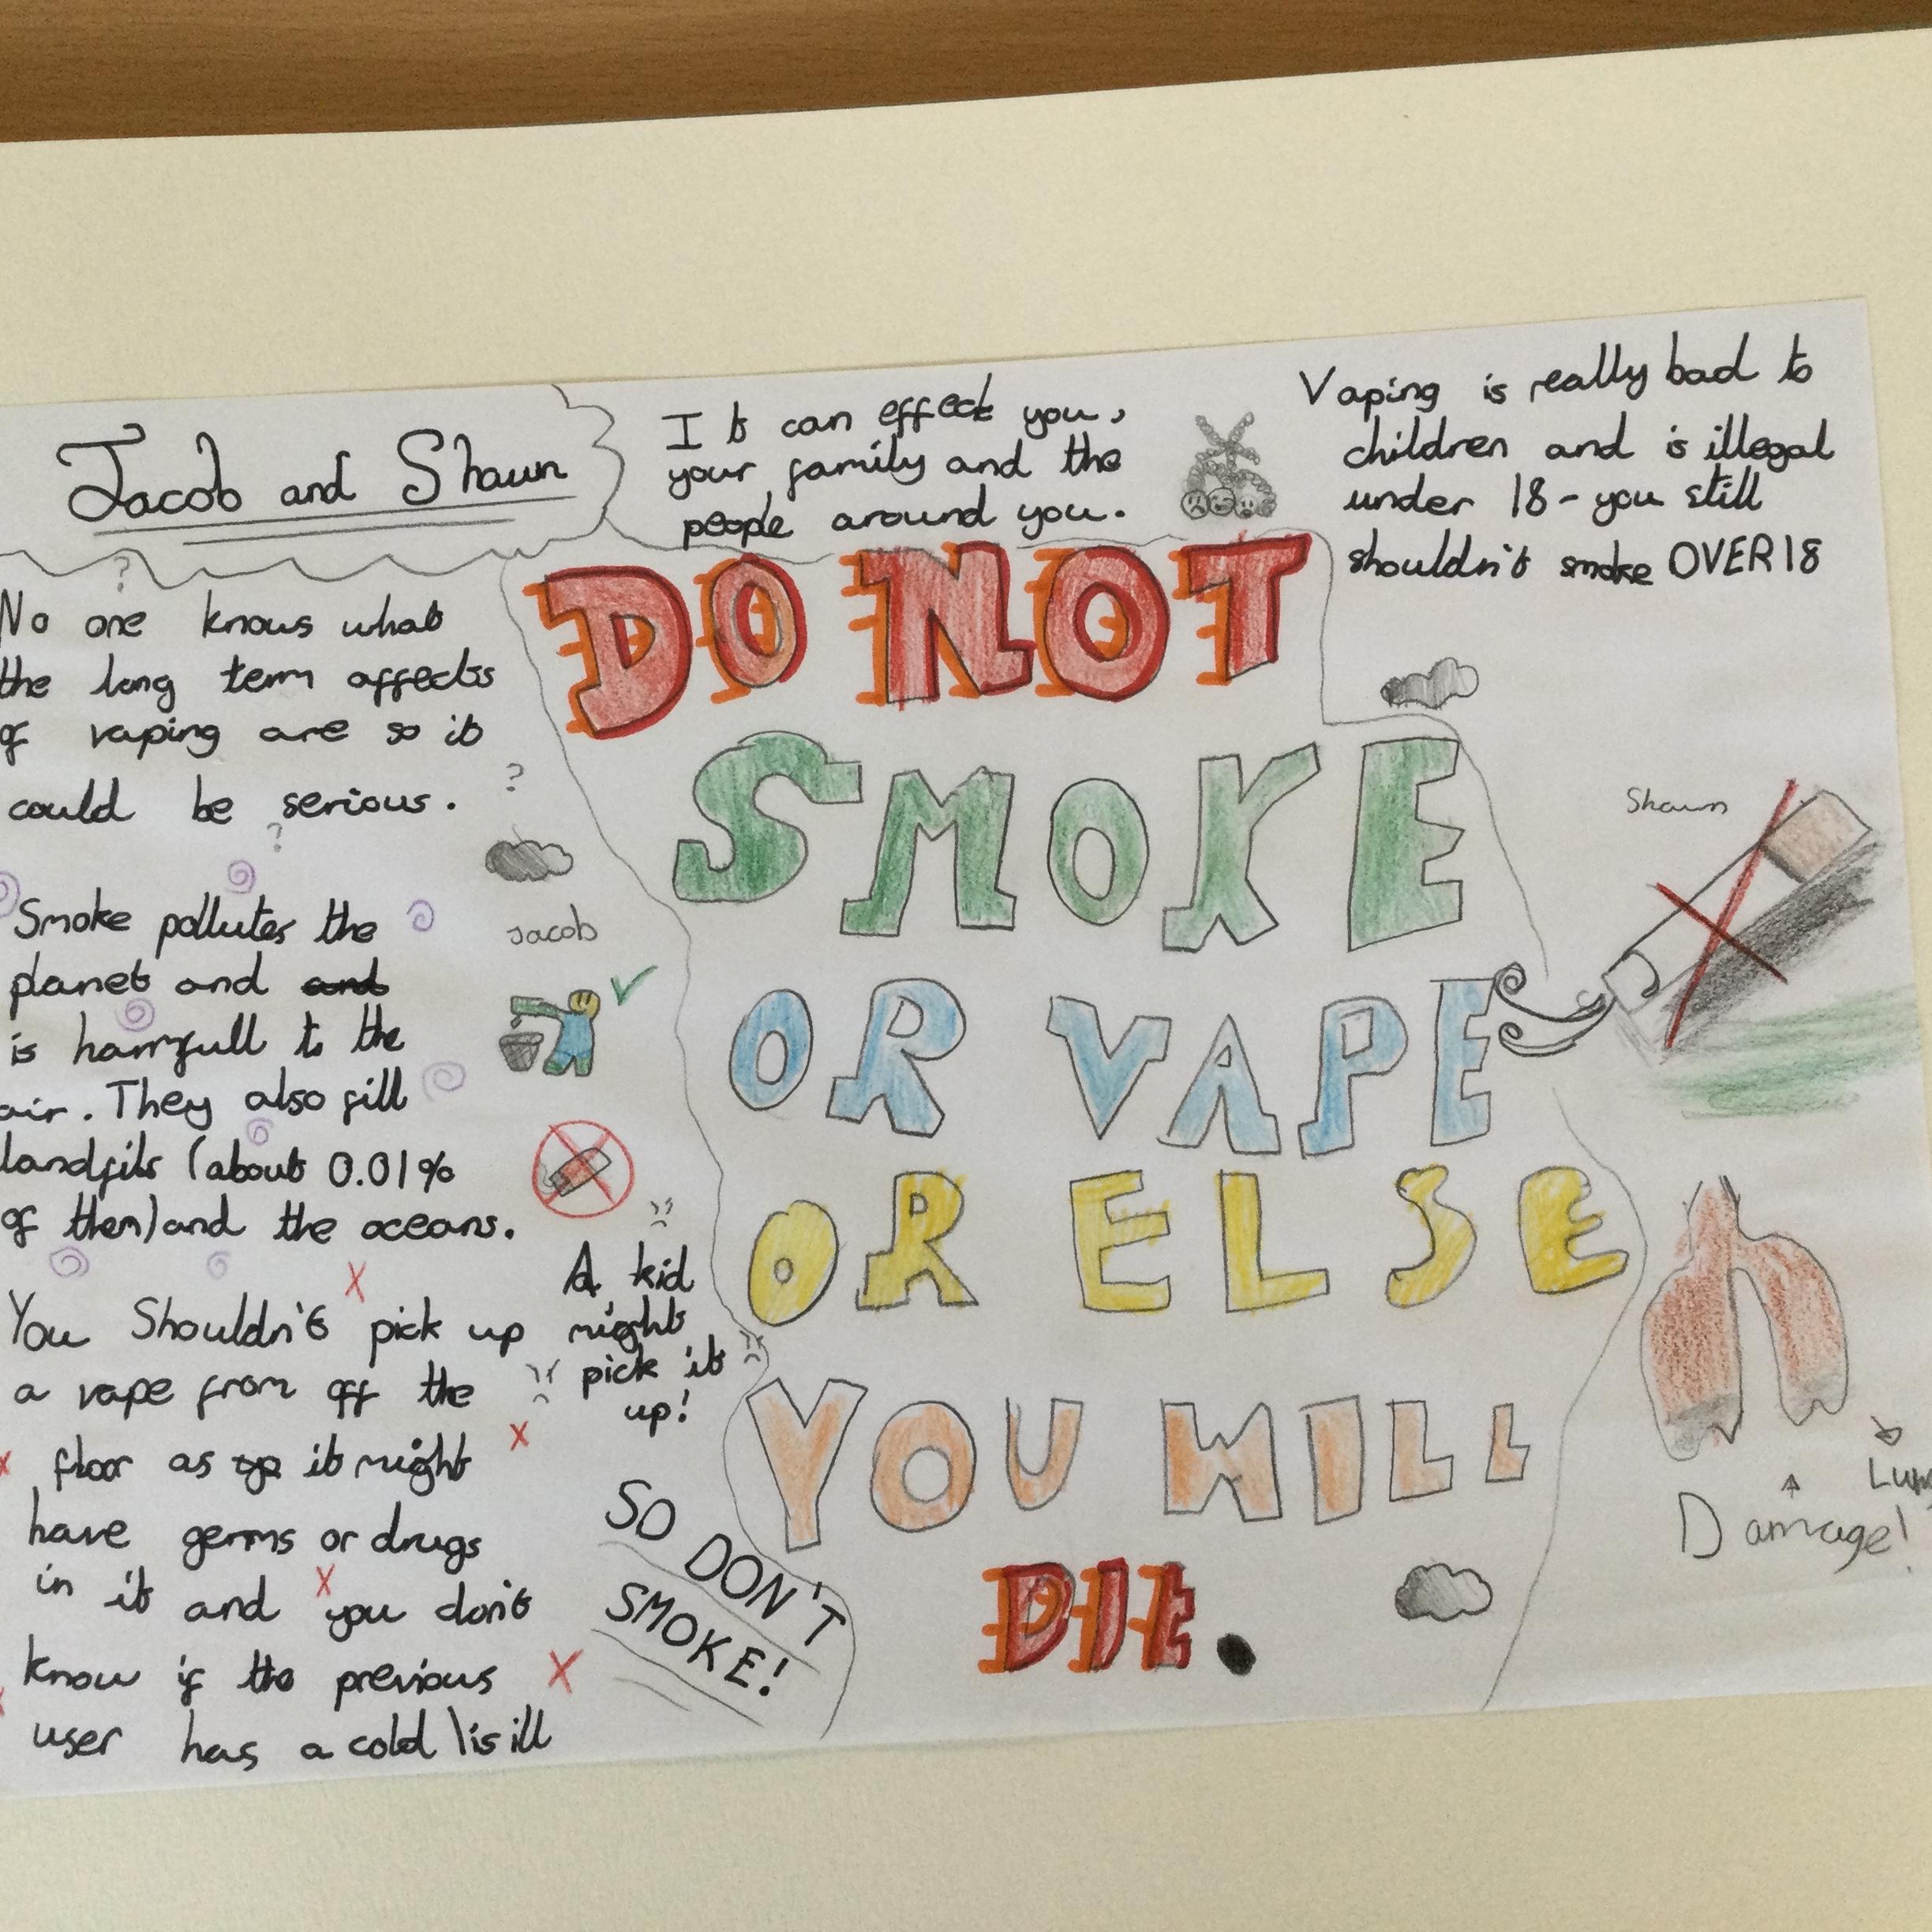 Jacob and Shaun
It can effect you,
your family and the
people around you.
Vaping is really bad to
children and is illegal
under 18 - you still
shouldn't smoke OVER 18
?
No one knows what
the long term affects
of vaping are so it
could be serious.
?
?
Smoke pollutes the
planet and and
is harmfull to the
air. They also fill
landfils (about 0.01%
of them) and the oceans.
Jacob
You Shouldn't pick up
a vape from off the
floor as it might
have germs or drugs
in it and you don't
know if the previous
user has a cold \is ill
A kid
might
pick it
up!
SO DON'T
SMOKE!
DO NOT
SMOKE
OR VAPE
OR ELSE
YOU WILL
DIE.
Shaun
Damage!